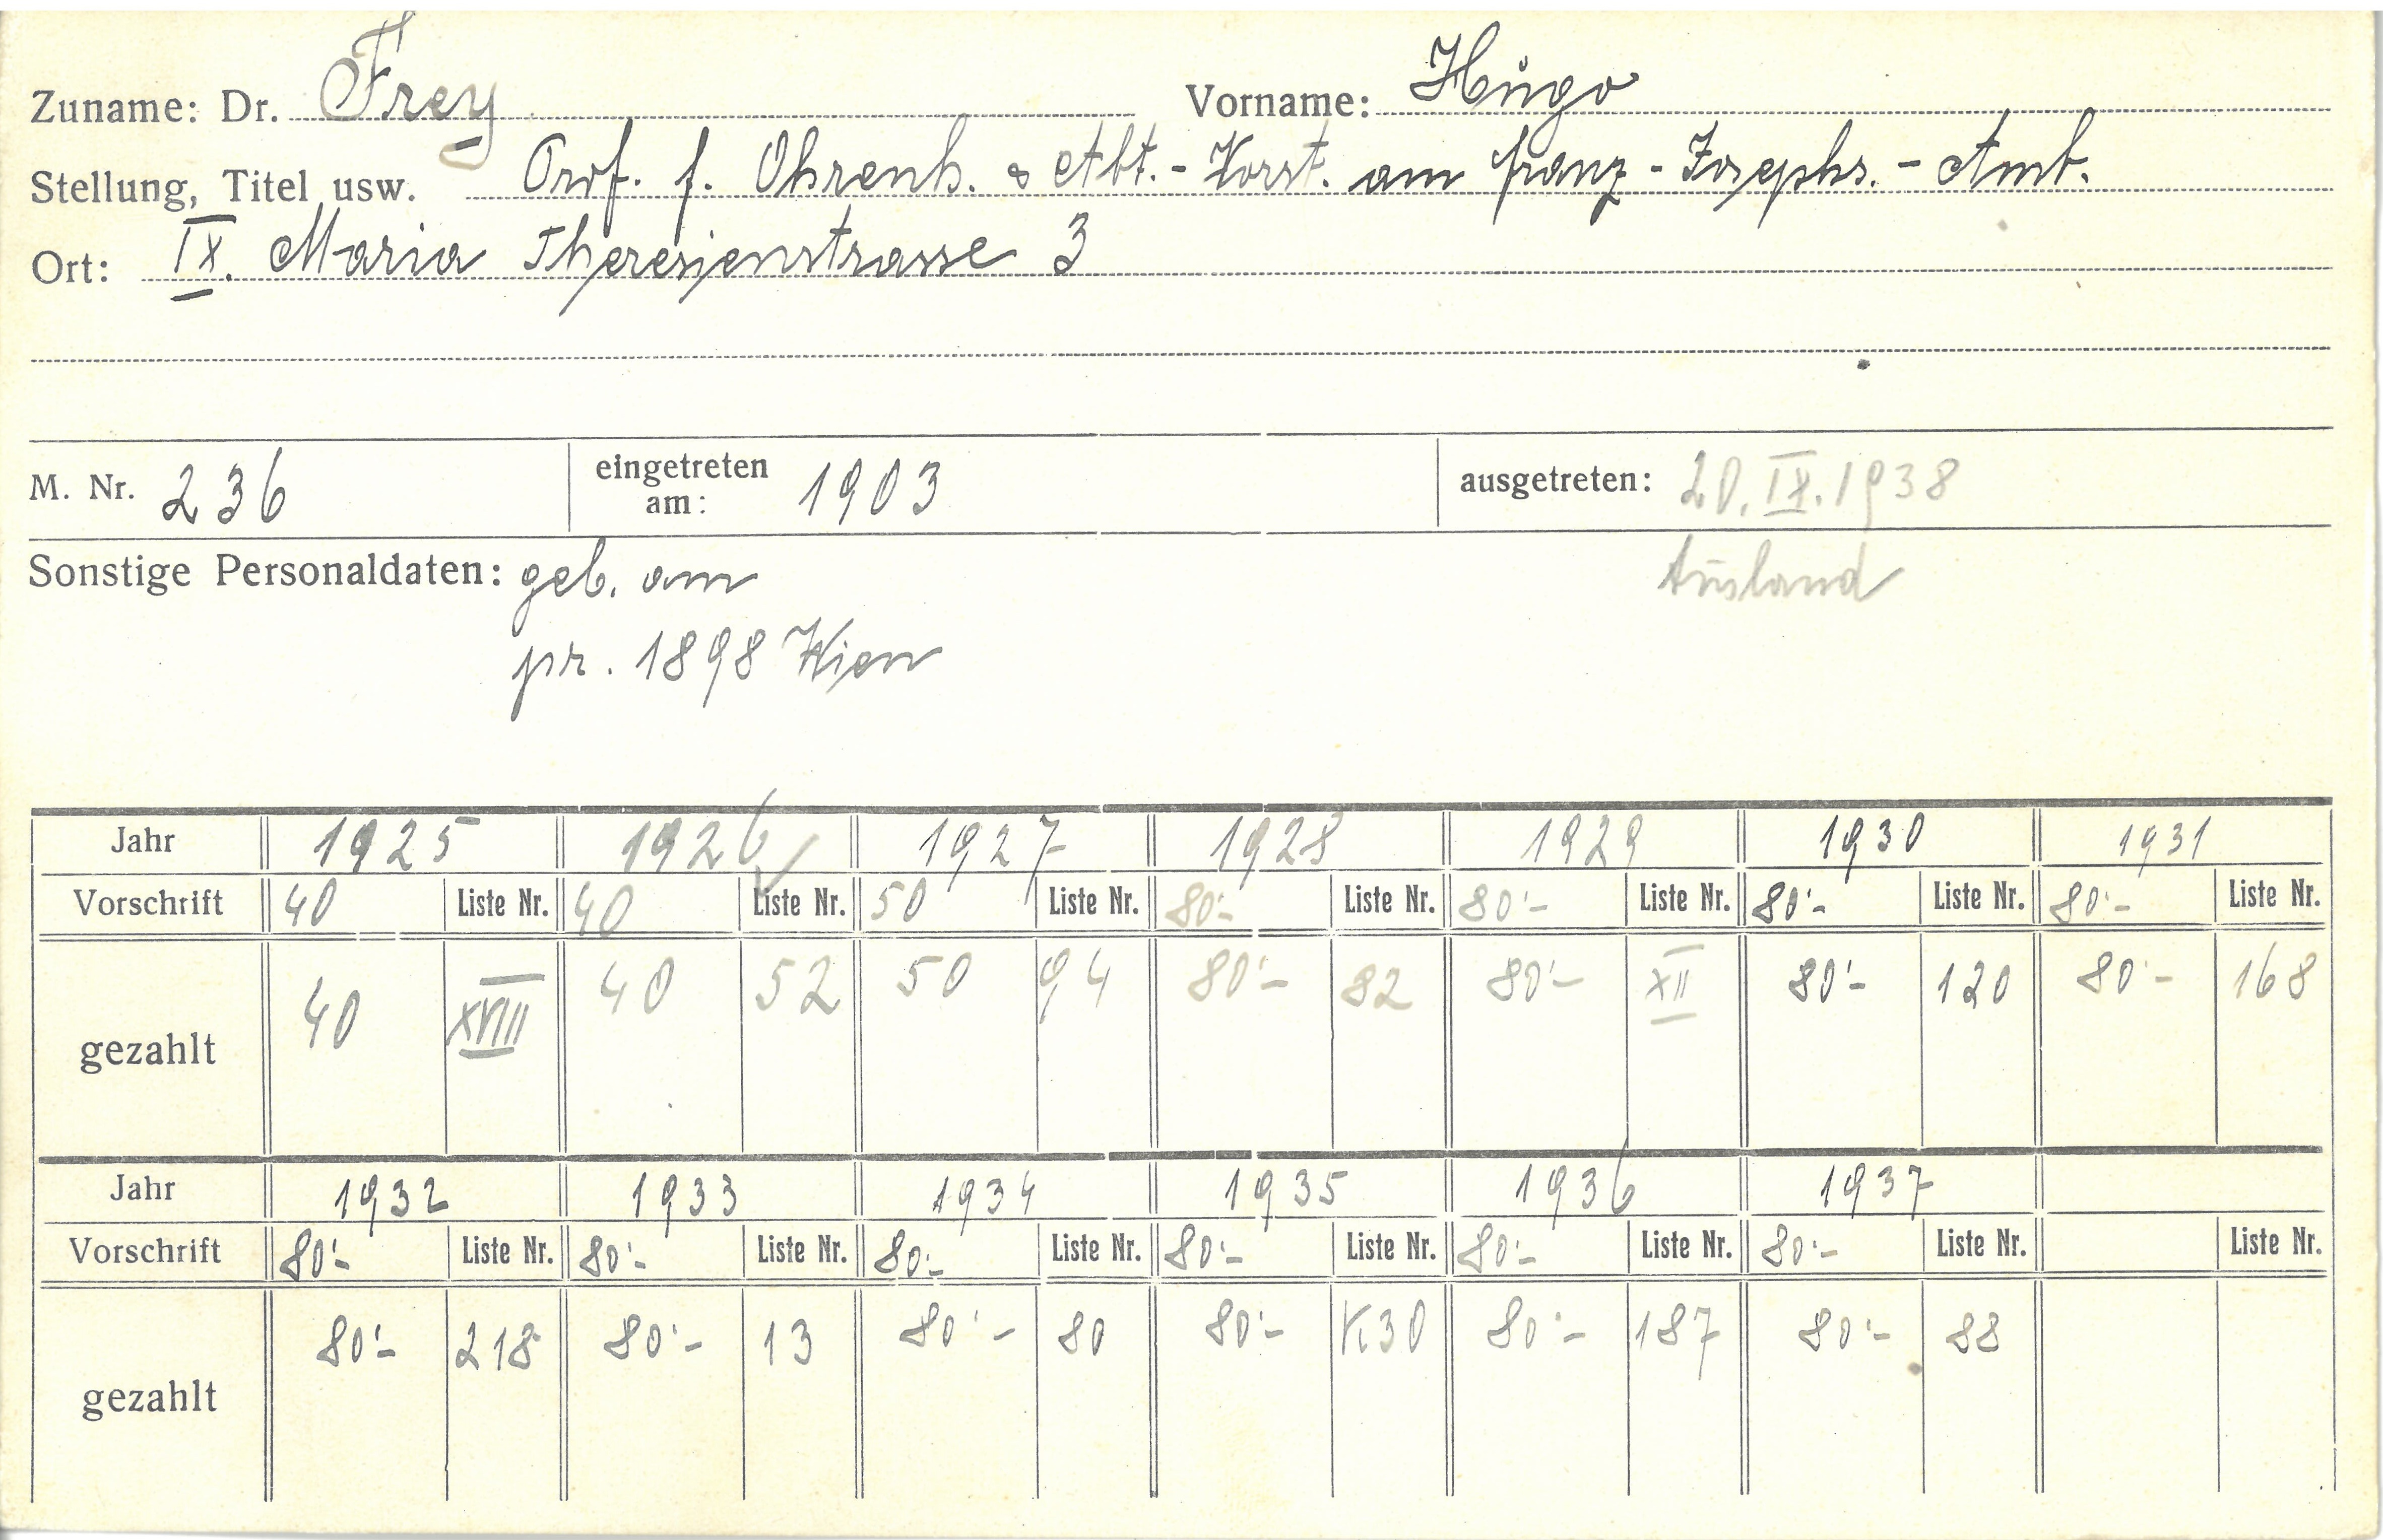 Zuname: Dr. Frey Vorname: Hugo
Stellung, Titel usw. Prof. f. Ohrenh. & Abt.-Vorst. am Franz-Josephs.-Amb.
Ort: IX. Maria Theresienstrasse 3
M. Nr. 236 eingetreten am: 1903 ausgetreten: 20.IX.1938
Ausland
Sonstige Personaldaten: geb. am
pr. 1898 Wien
Jahr 1925 1926 1927 1928 1929 1930 1931
Vorschrift 40 Liste Nr. 40 Liste Nr. 50 Liste Nr. 80'- Liste Nr. 80'- Liste Nr. 80'- Liste Nr. 80'- Liste Nr.
gezahlt 40 XVIII 40 52 50 94 80'- 82 80'- XII 80'- 120 80'- 168
Jahr 1932 1933 1934 1935 1936 1937
Vorschrift 80'- Liste Nr. 80'- Liste Nr. 80'- Liste Nr. 80'- Liste Nr. 80'- Liste Nr. 80'- Liste Nr. Liste Nr.
gezahlt 80'- 218 80'- 13 80'- 80 80'- K30 80'- 187 80'- 88